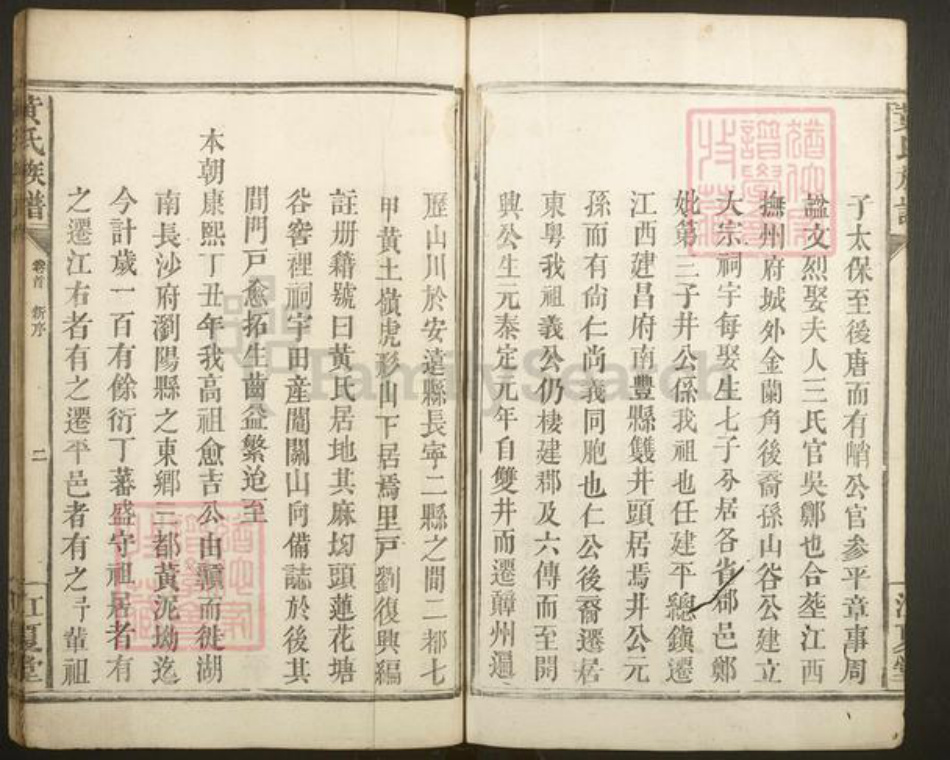 子太保至後唐而有哨公官參平章事周
諡文烈娶夫人三氏官吳鄭也合塟江西
撫州府城外金蘭角後裔孫山谷公建立
大宗祠宇每娶生七子分居各省郡邑鄭
妣第三子井公係我祖也任建平總鎮遷
江西建昌府南豐縣雙井頭居焉井公元
孫而有尚仁尚義同胞也仁公後裔遷居
東粵我祖義公仍棲建郡及六傳而至開
興公生元泰定元年自雙井而遷贛州遍
歷山川於安遠縣長寧二縣之間二都七
甲黃土嶺虎形山下居焉里戸劉復興編
註册籍號曰黃氏居地其麻㘭頭蓮花塘
谷窖裡祠宇田產閶關山向備誌於後其
間門戸愈拓生齒益繁迨至
本朝康熙丁丑年我高祖愈吉公由贛而徙湖
南長沙府瀏陽縣之東鄉三都黃泥坳迄
今計歲一百有餘衍丁蕃盛守祖居者有
之遷江右者有之遷平邑者有之予輩祖
黃氏族譜
卷首 新序
二
江夏堂
FamilySearch